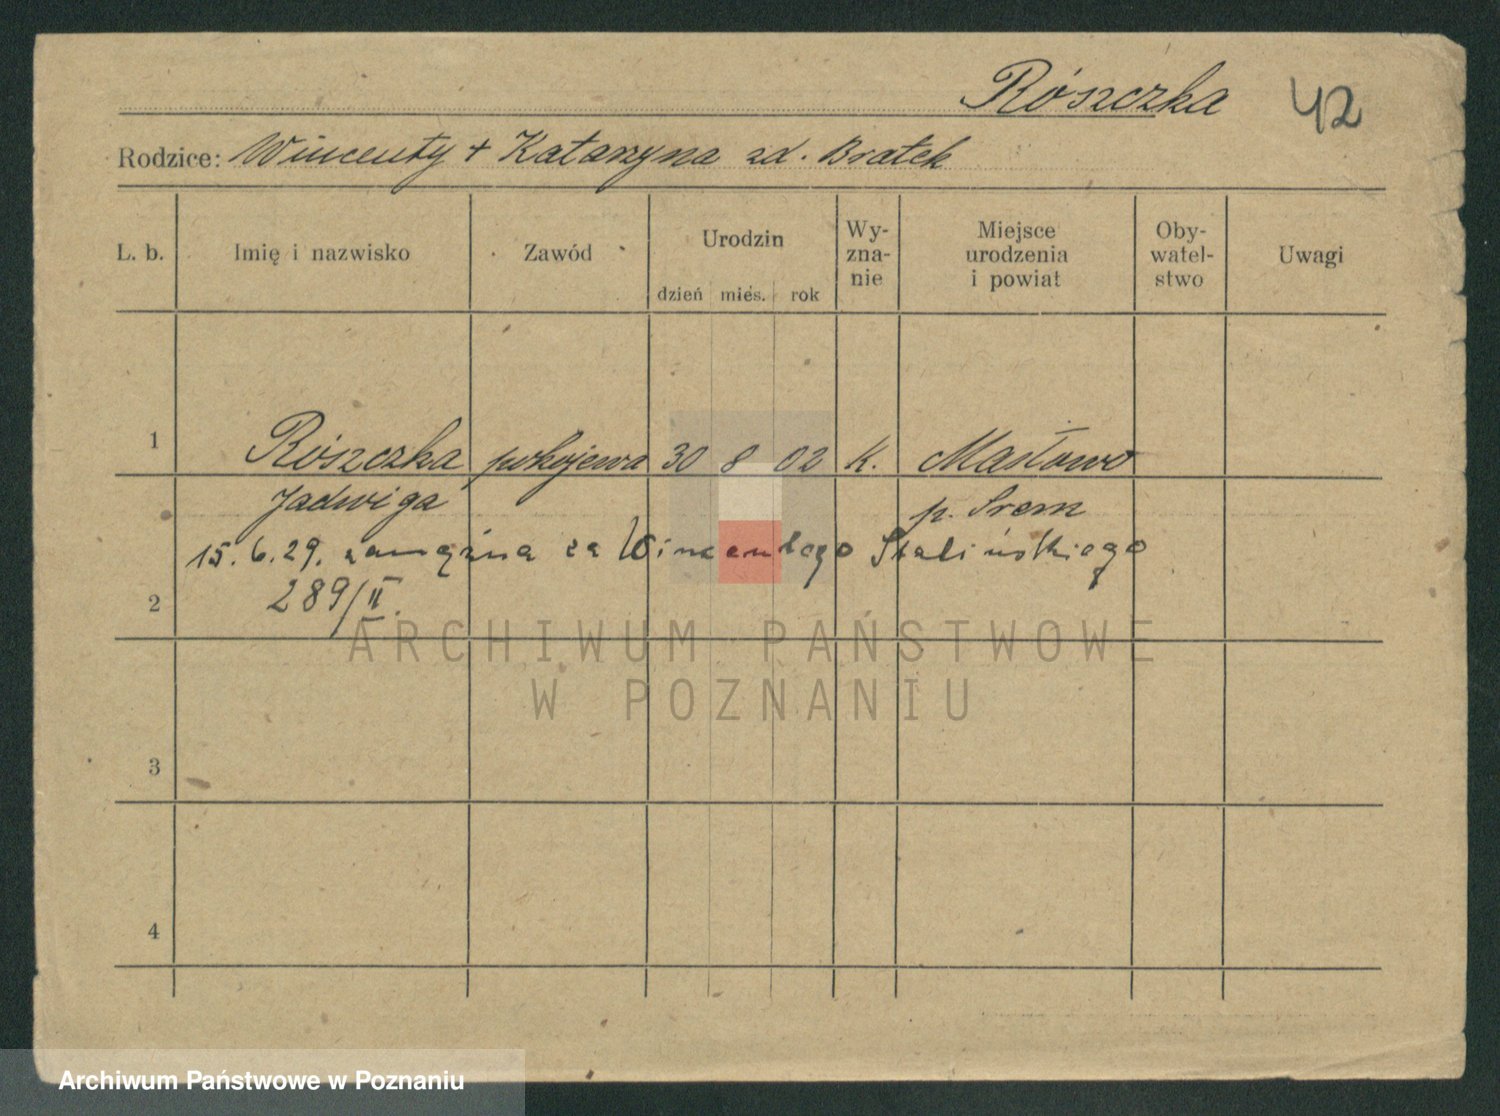 Rószczka 42
Rodzice: Wincenty + Katarzyna zd. Bratek
L. b. Imię i nazwisko Zawód Urodzin dzień mies. rok Wy-zna-nie Miejsce urodzenia i powiat Oby-watel-stwo Uwagi
1 Rószczka pokojewa 30 8 02 k. Masłowo
Jadwiga p. Srem
15.6.29. zamężna za Wincentego Stalińskiego
2 289/II.
ARCHIWUM PAŃSTWOWE
W POZNANIU
3
4
Archiwum Państwowe w Poznaniu